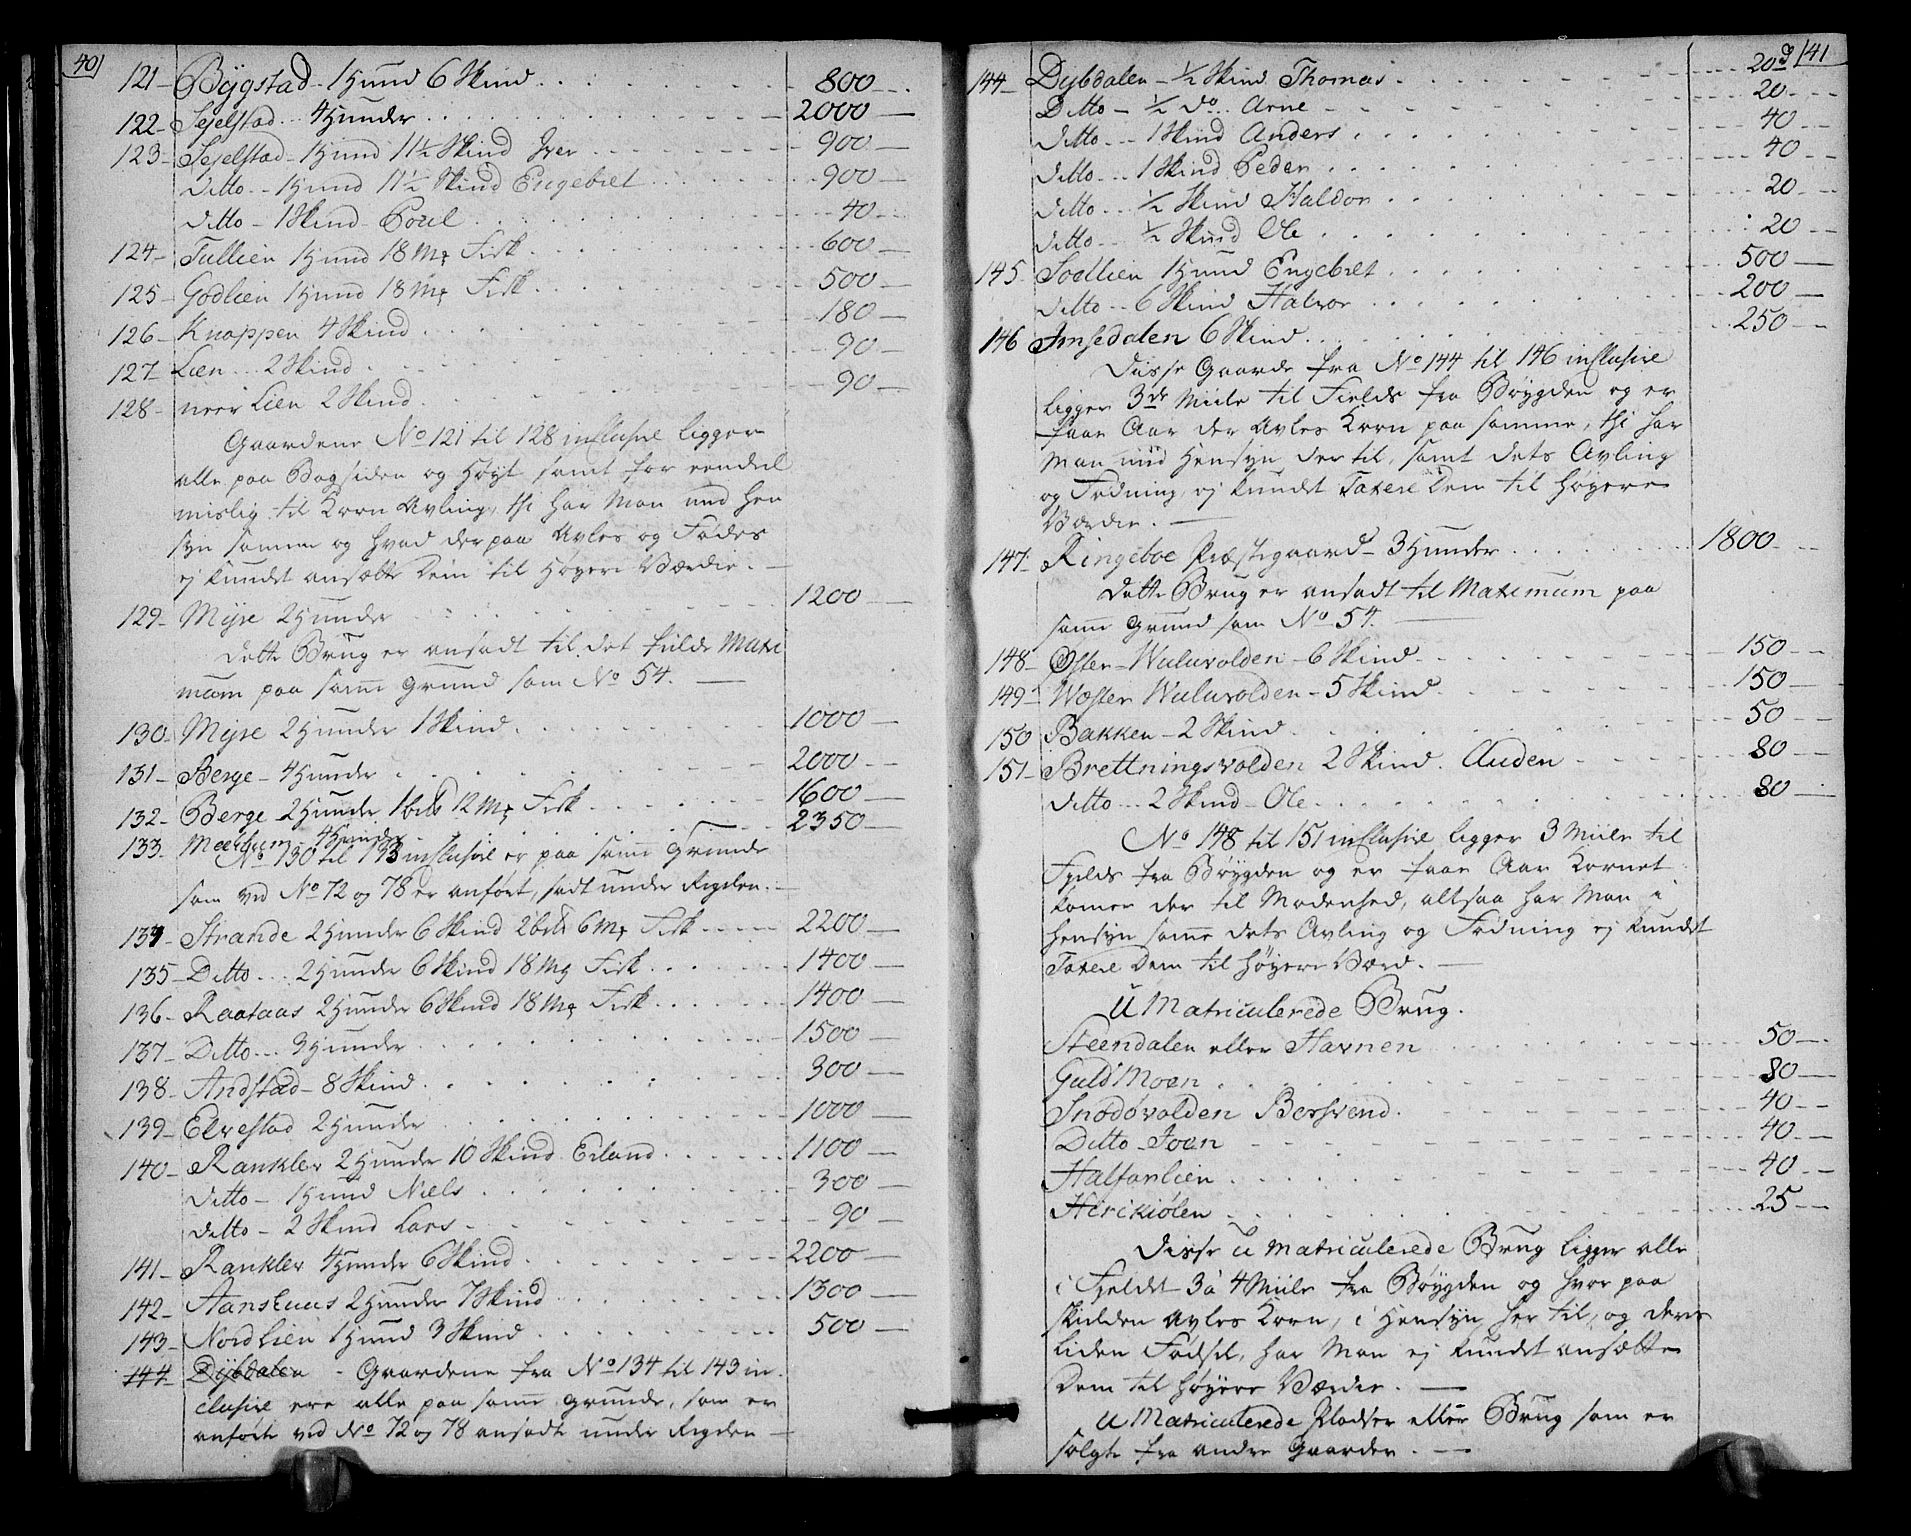 40)
121 - Bÿgstad - 1 Hund 6 Skind . . . 800 -
122 - Sejelstad . . . 4 Hunder . . . 2000 -
123 - Sejelstad - 1 Hund 11½ Skind Iver . . . 900 -
Ditto - 1 Hund 11½ Skind Engebret . . . 900 -
Ditto - 1 Skind - Poul . . . 40 -
124 - Tullien 1 Hund 18 Mk Fisk . . . 600 -
125 - Godlien 1 Hund 18 Mk Fisk . . . 500 -
126 - Knappen 4 Skind . . . 180 -
127 - Lien . . . 2 Skind . . . 90 -
128 - neer Lien 2 Skind . . . 90 -
Gaardene No 121 til 128 inclusive ligger
alle paa Bagsiden og Høyt samt for eendeel
mislig til Korn Avling, thi har Man med Hen
syn samme og hvad der paa Avles og Fødes
ej kundet ansætte Dem til Høyere Værdie. -
129 - Mÿre 2 Hunder . . . 1200 -
Dette Brug er ansadt til det fulde Maxi
mum paa samme Grund som No 54. -
130 - Mÿre 2 Hunder 1 Skind . . . 1000 -
131 - Berge - 4 Hunder . . . 2000 -
132 - Berge - 2 Hunder 1 bd 12 Mk Fisk . . . 1600 -
133 - Meelum 4 Hunder . . . 2350 -
No 130 til 133 inclusive er paa samme Grunde
som ved No 72 og 78 er anført, sadt under Rigelen. -
134 - Strande 2 Hunder 6 Skind 2 bd 6 Mk Fisk . . . 2200 -
135 - Ditto . . . 2 Hunder 6 Skind 18 Mk Fisk . . . 1400 -
136 - Raataas 2 Hunder 6 Skind 18 Mk Fisk . . . 1400 -
137 - Ditto . . . 3 Hunder . . . 1500 -
138 - Andstad - 8 Skind . . . 300 -
139 - Elvestad 2 Hunder . . . 1000 -
140 - Rankler 2 Hunder 10 Skind Erland . . . 1100 -
Ditto - 1 Hund Niels . . . 300 -
Ditto - 2 Skind Lars . . . 90 -
141 - Rankler 4 Hunder 6 Skind . . . 2200 -
142 - Aanstuus 2 Hunder 7 Skind . . . 1300 -
143 - Nordlien 1 Hund 3 Skind . . . 500 -
144 - Dÿbdalen - Gaardene fra No 134 til 143 in
clusive ere alle paa samme Grunde, som er
anførte ved No 72 og 78 ansadte under Rigelen -
(41
144 - Dybdalen - ½ Skind Thomas . . . 20 d
Ditto - ½ do. Arne . . . 20 -
Ditto . . . 1 Skind Anders . . . 40 -
Ditto . . . 1 Skind Peder . . . 40 -
Ditto . . . ½ Skind Haldor . . . 20 -
Ditto . . . ½ Skind Ole . . . 20 -
145 Sodlien 1 Hund Engebret . . . 500 -
Ditto . . . 6 Skind Halvor . . . 200 -
146 Imsedalen 6 Skind . . . 250 -
Disse Gaarde fra No 144 til 146 inclusive
ligger 3de Miile til Fields fra Bøygden og er
faae Aar der Avles Korn paa samme, thi har
Man med Hensyn der til, samt dets Avling
og Fødning, ej kundet Taxere Dem til Høyere
Værdie. -
147 - Ringeboe Præstegaard - 3 Hunder . . . 1800 -
Dette Brug er ansadt til Maximum paa
samme Grund som No 54. -
148 - Øster - Wuluvolden - 6 Skind . . . 150 -
149 - Wæster Wuluvolden - 5 Skind . . . 150 -
150 Bakken - 2 Skind . . . 50 -
151 - Brettningsvolden 2 Skind. Auden . . . 80 -
Ditto . . . 2 Skind - Ole . . . 80 -
No 148 til 151 inclusive ligger 3 Miile til
Fjelds fra Bøygden og er faae Aar Kornet
komer der til Modenhed, altsaa har Man i
Hensyn samme dets Avling og Fødning ej kundet
Taxere Dem til Høyere Værd. -
U Matriculerede Brug.
Steendalen eller Havnen . . . 50 -
Guld Moen . . . 80 -
Snødøvolden Berhvend . . . 40 -
Ditto - Joen . . . 40 -
Halfarlien . . . 40 -
Hirikiølen . . . 25 -
Disse U Matriculerede Brug ligger alle
i Fjeldet 3 à 4 Miile fra Bøygden og hvor paa
skielden Avles Korn, i Hensyn her til, og deres
Liden Fødsel, har Man ej kundet ansætte
Dem til Høyere Værdie. -
U Matriculerede Pladser eller Brug som er
solgte fra andre Gaarder. -